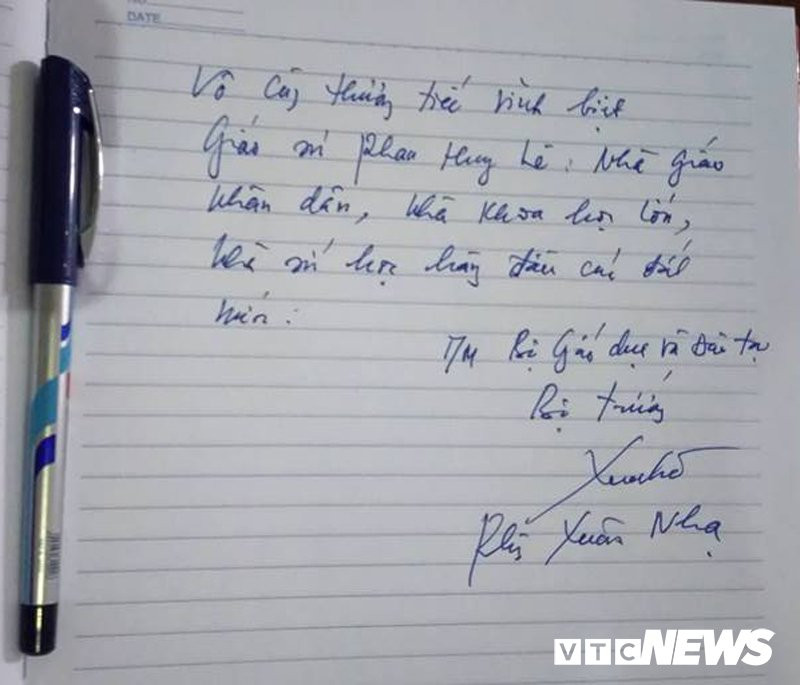 NO.
DATE
Vô cùng thương tiếc vĩnh biệt
Giáo sư Phan Huy Lê: Nhà giáo
nhân dân, nhà khoa học lớn,
nhà sử học hàng đầu của đất
nước:
T/M Bộ Giáo dục và Đào tạo
Bộ trưởng
Phùng Xuân Nhạ
VTC NEWS